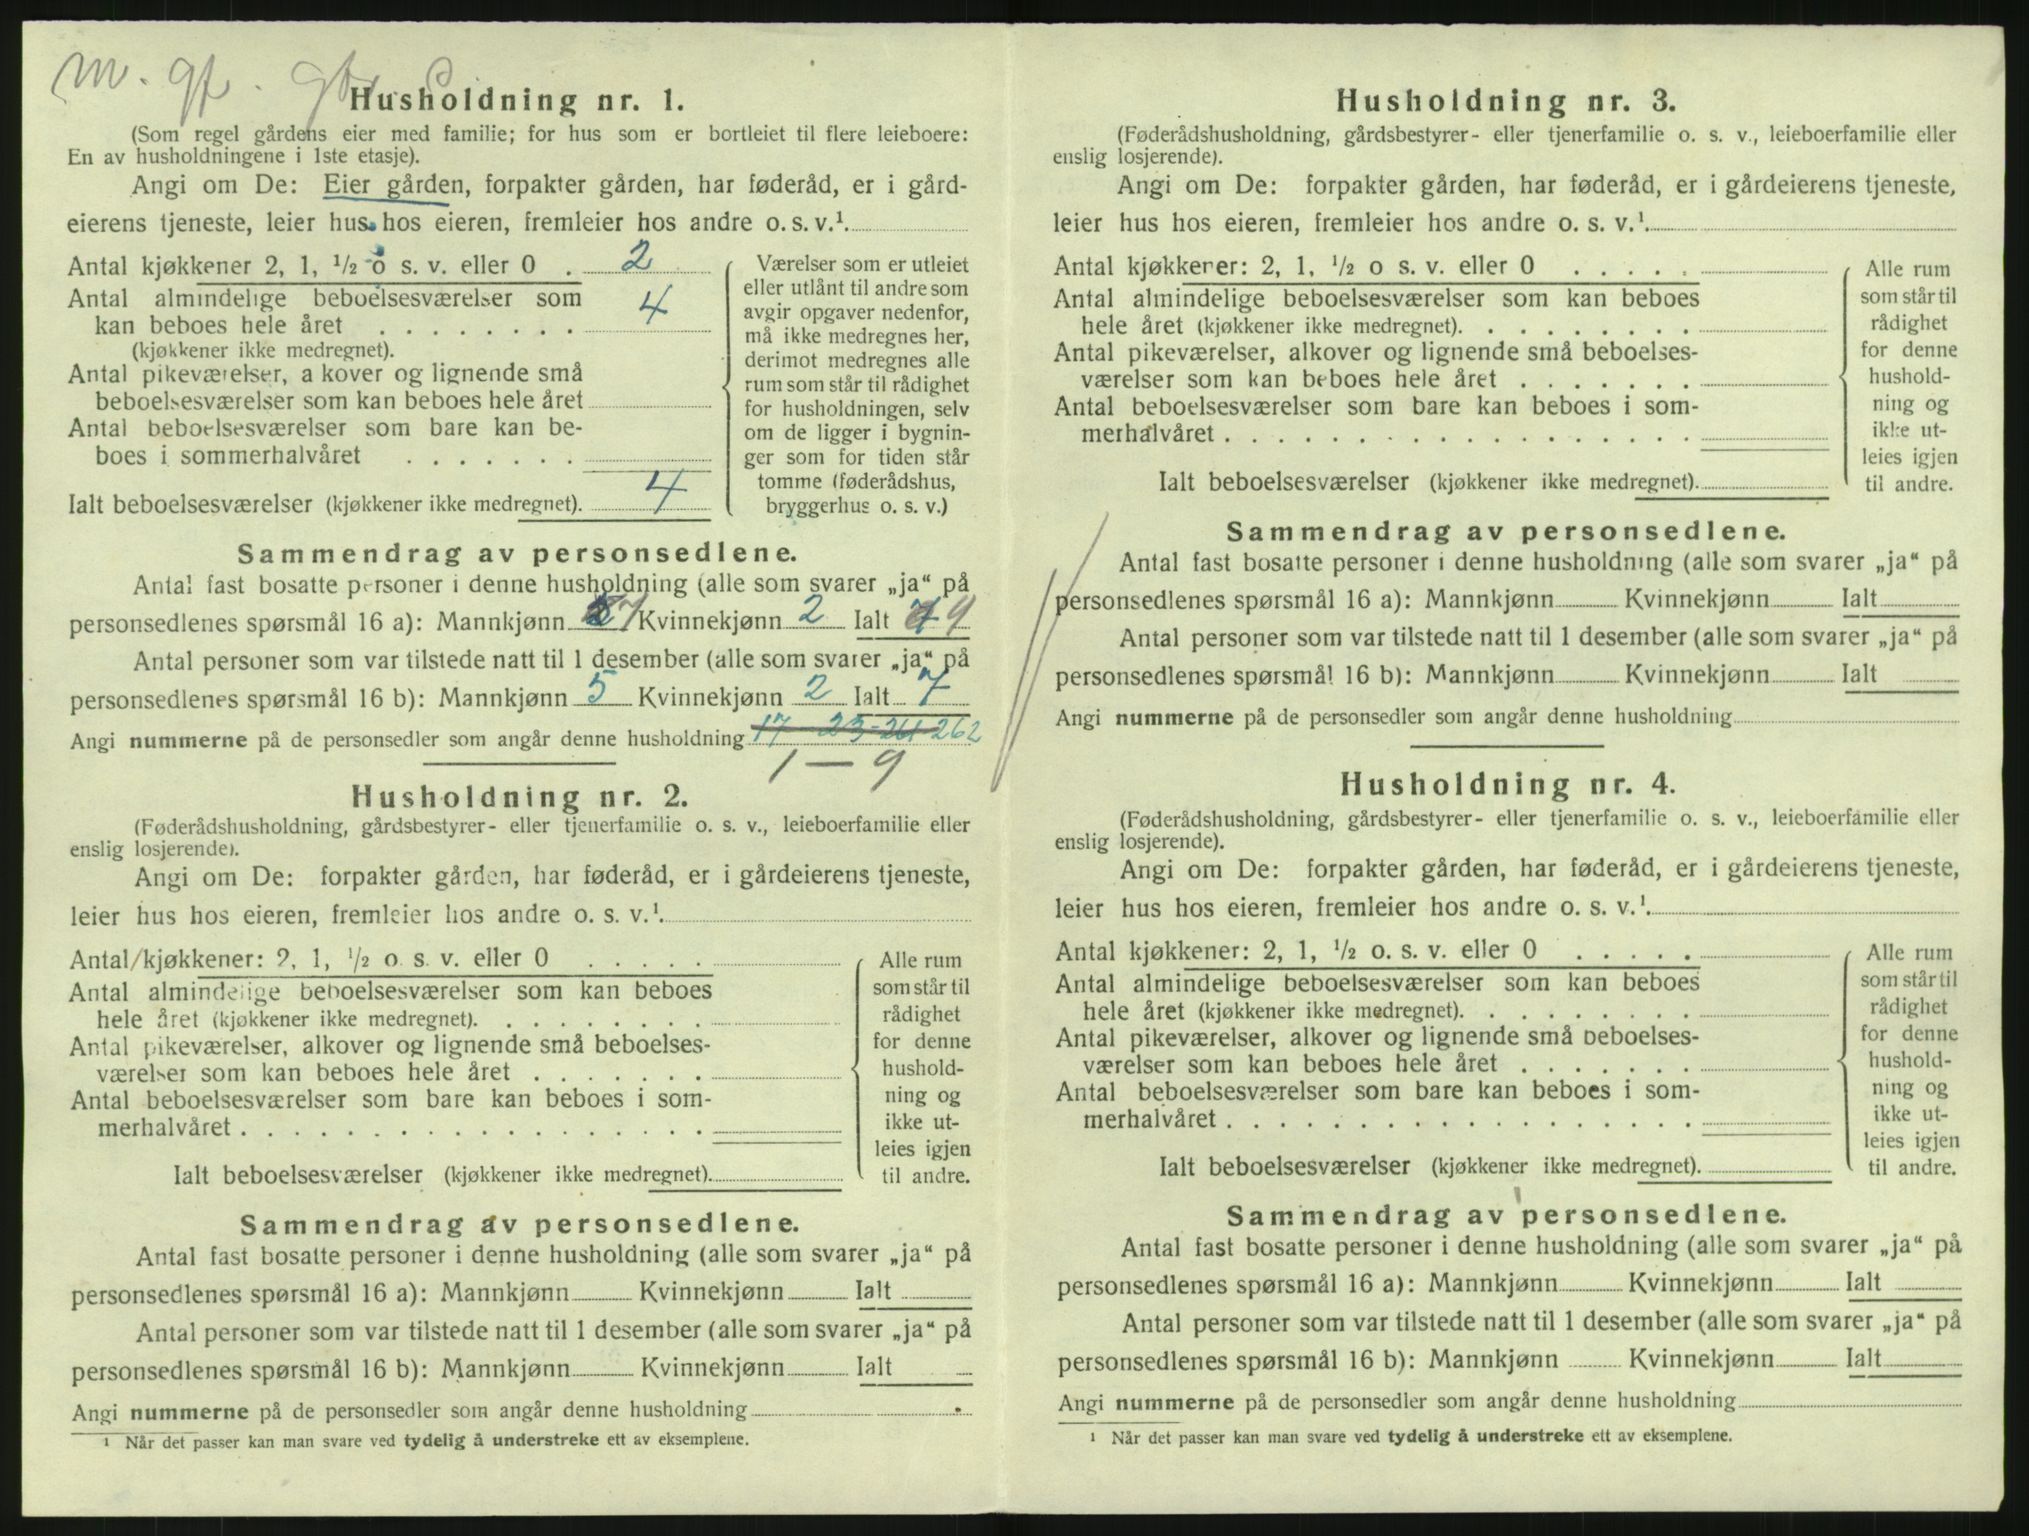 m. gf. gbr
Husholdning nr. 1.
(Som regel gårdens eier med familie; for hus som er bortleiet til flere leieboere:
En av husholdningene i 1ste etasje).
Angi om De: Eier gården, forpakter gården, har føderåd, er i gård-
eierens tjeneste, leier hus hos eieren, fremleier hos andre o. s. v.¹.
Antal kjøkkener 2, 1, ½ o s. v. eller 0 . 2
Antal almindelige beboelsesværelser som
kan beboes hele året . . . . . . . . 4
(kjøkkener ikke medregnet).
Antal pikeværelser, a kover og lignende små
beboelsesværelser som kan beboes hele året
Antal beboelsesværelser som bare kan be-
boes i sommerhalvåret . . . . . . .
Ialt beboelsesværelser (kjøkkener ikke medregnet). 4
Værelser som er utleiet
eller utlånt til andre som
avgir opgaver nedenfor,
må ikke medregnes her,
derimot medregnes alle
rum som står til rådighet
for husholdningen, selv
om de ligger i bygnin-
ger som for tiden står
tomme (føderådshus,
bryggerhus o. s. v.)
Sammendrag av personsedlene.
Antal fast bosatte personer i denne husholdning (alle som svarer „ja“ på
personsedlenes spørsmål 16 a): Mannkjønn 7 Kvinnekjønn 2 Ialt 9
Antal personer som var tilstede natt til 1 desember (alle som svarer „ja“ på
personsedlenes spørsmål 16 b): Mannkjønn 5 Kvinnekjønn 2 Ialt 7
Angi nummerne på de personsedler som angår denne husholdning 17 - 23-261-262
1 — 9
Husholdning nr. 2.
(Føderådshusholdning, gårdsbestyrer- eller tjenerfamilie o. s. v., leieboerfamilie eller
enslig losjerende).
Angi om De: forpakter gården, har føderåd, er i gårdeierens tjeneste,
leier hus hos eieren, fremleier hos andre o. s. v.¹.
Antal kjøkkener: 2, 1, ½ o. s. v. eller 0 . . . . .
Antal almindelige beboelsesværelser som kan beboes
hele året (kjøkkener ikke medregnet). . . . . . . . .
Antal pikeværelser, alkover og lignende små beboelses-
værelser som kan beboes hele året . . . . . . .
Antal beboelsesværelser som bare kan beboes i som-
merhalvåret . . . . . . . . . . . . . . . . . .
Ialt beboelsesværelser (kjøkkener ikke medregnet).
Alle rum
som står til
rådighet
for denne
hushold-
ning og
ikke ut-
leies igjen
til andre.
Sammendrag av personsedlene.
Antal fast bosatte personer i denne husholdning (alle som svarer „ja“ på
personsedlenes spørsmål 16 a): Mannkjønn Kvinnekjønn Ialt
Antal personer som var tilstede natt til 1 desember (alle som svarer „ja“ på
personsedlenes spørsmål 16 b): Mannkjønn Kvinnekjønn Ialt
Angi nummerne på de personsedler som angår denne husholdning
¹ Når det passer kan man svare ved tydelig å understreke ett av eksemplene.
Husholdning nr. 3.
(Føderådshusholdning, gårdsbestyrer- eller tjenerfamilie o. s. v., leieboerfamilie eller
enslig losjerende).
Angi om De: forpakter gården, har føderåd, er i gårdeierens tjeneste,
leier hus hos eieren, fremleier hos andre o. s. v.¹.
Antal kjøkkener: 2, 1, ½ o s. v. eller 0 . . . . .
Antal almindelige beboelsesværelser som kan beboes
hele året (kjøkkener ikke medregnet). . . . . . . . .
Antal pikeværelser, alkover og lignende små beboelses-
værelser som kan beboes hele året . . . . . . .
Antal beboelsesværelser som bare kan beboes i som-
merhalvåret . . . . . . . . . . . . . . . . . .
Ialt beboelsesværelser (kjøkkener ikke medregnet).
Alle rum
som står til
rådighet
for denne
hushold-
ning og
ikke ut-
leies igjen
til andre.
Sammendrag av personsedlene.
Antal fast bosatte personer i denne husholdning (alle som svarer „ja“ på
personsedlenes spørsmål 16 a): Mannkjønn Kvinnekjønn Ialt
Antal personer som var tilstede natt til 1 desember (alle som svarer „ja“ på
personsedlenes spørsmål 16 b): Mannkjønn Kvinnekjønn Ialt
Angi nummerne på de personsedler som angår denne husholdning
Husholdning nr. 4.
(Føderådshusholdning, gårdsbestyrer- eller tjenerfamilie o. s. v., leieboerfamilie eller
enslig losjerende).
Angi om De: forpakter gården, har føderåd, er i gårdeierens tjeneste,
leier hus hos eieren, fremleier hos andre o. s. v.¹.
Antal kjøkkener: 2, 1, ½ o. s. v. eller 0 . . . . .
Antal almindelige beboelsesværelser som kan beboes
hele året (kjøkkener ikke medregnet). . . . . . . . .
Antal pikeværelser, alkover og lignende små beboelses-
værelser som kan beboes hele året . . . . . . .
Antal beboelsesværelser som bare kan beboes i som-
merhalvåret . . . . . . . . . . . . . . . . . .
Ialt beboelsesværelser (kjøkkener ikke medregnet).
Alle rum
som står til
rådighet
for denne
hushold-
ning og
ikke ut-
leies igjen
til andre.
Sammendrag av personsedlene.
Antal fast bosatte personer i denne husholdning (alle som svarer „ja“ på
personsedlenes spørsmål 16 a): Mannkjønn Kvinnekjønn Ialt
Antal personer som var tilstede natt til 1 desember (alle som svarer „ja“ på
personsedlenes spørsmål 16 b): Mannkjønn Kvinnekjønn Ialt
Angi nummerne på de personsedler som angår denne husholdning
¹ Når det passer kan man svare ved tydelig å understreke ett av eksemplene.